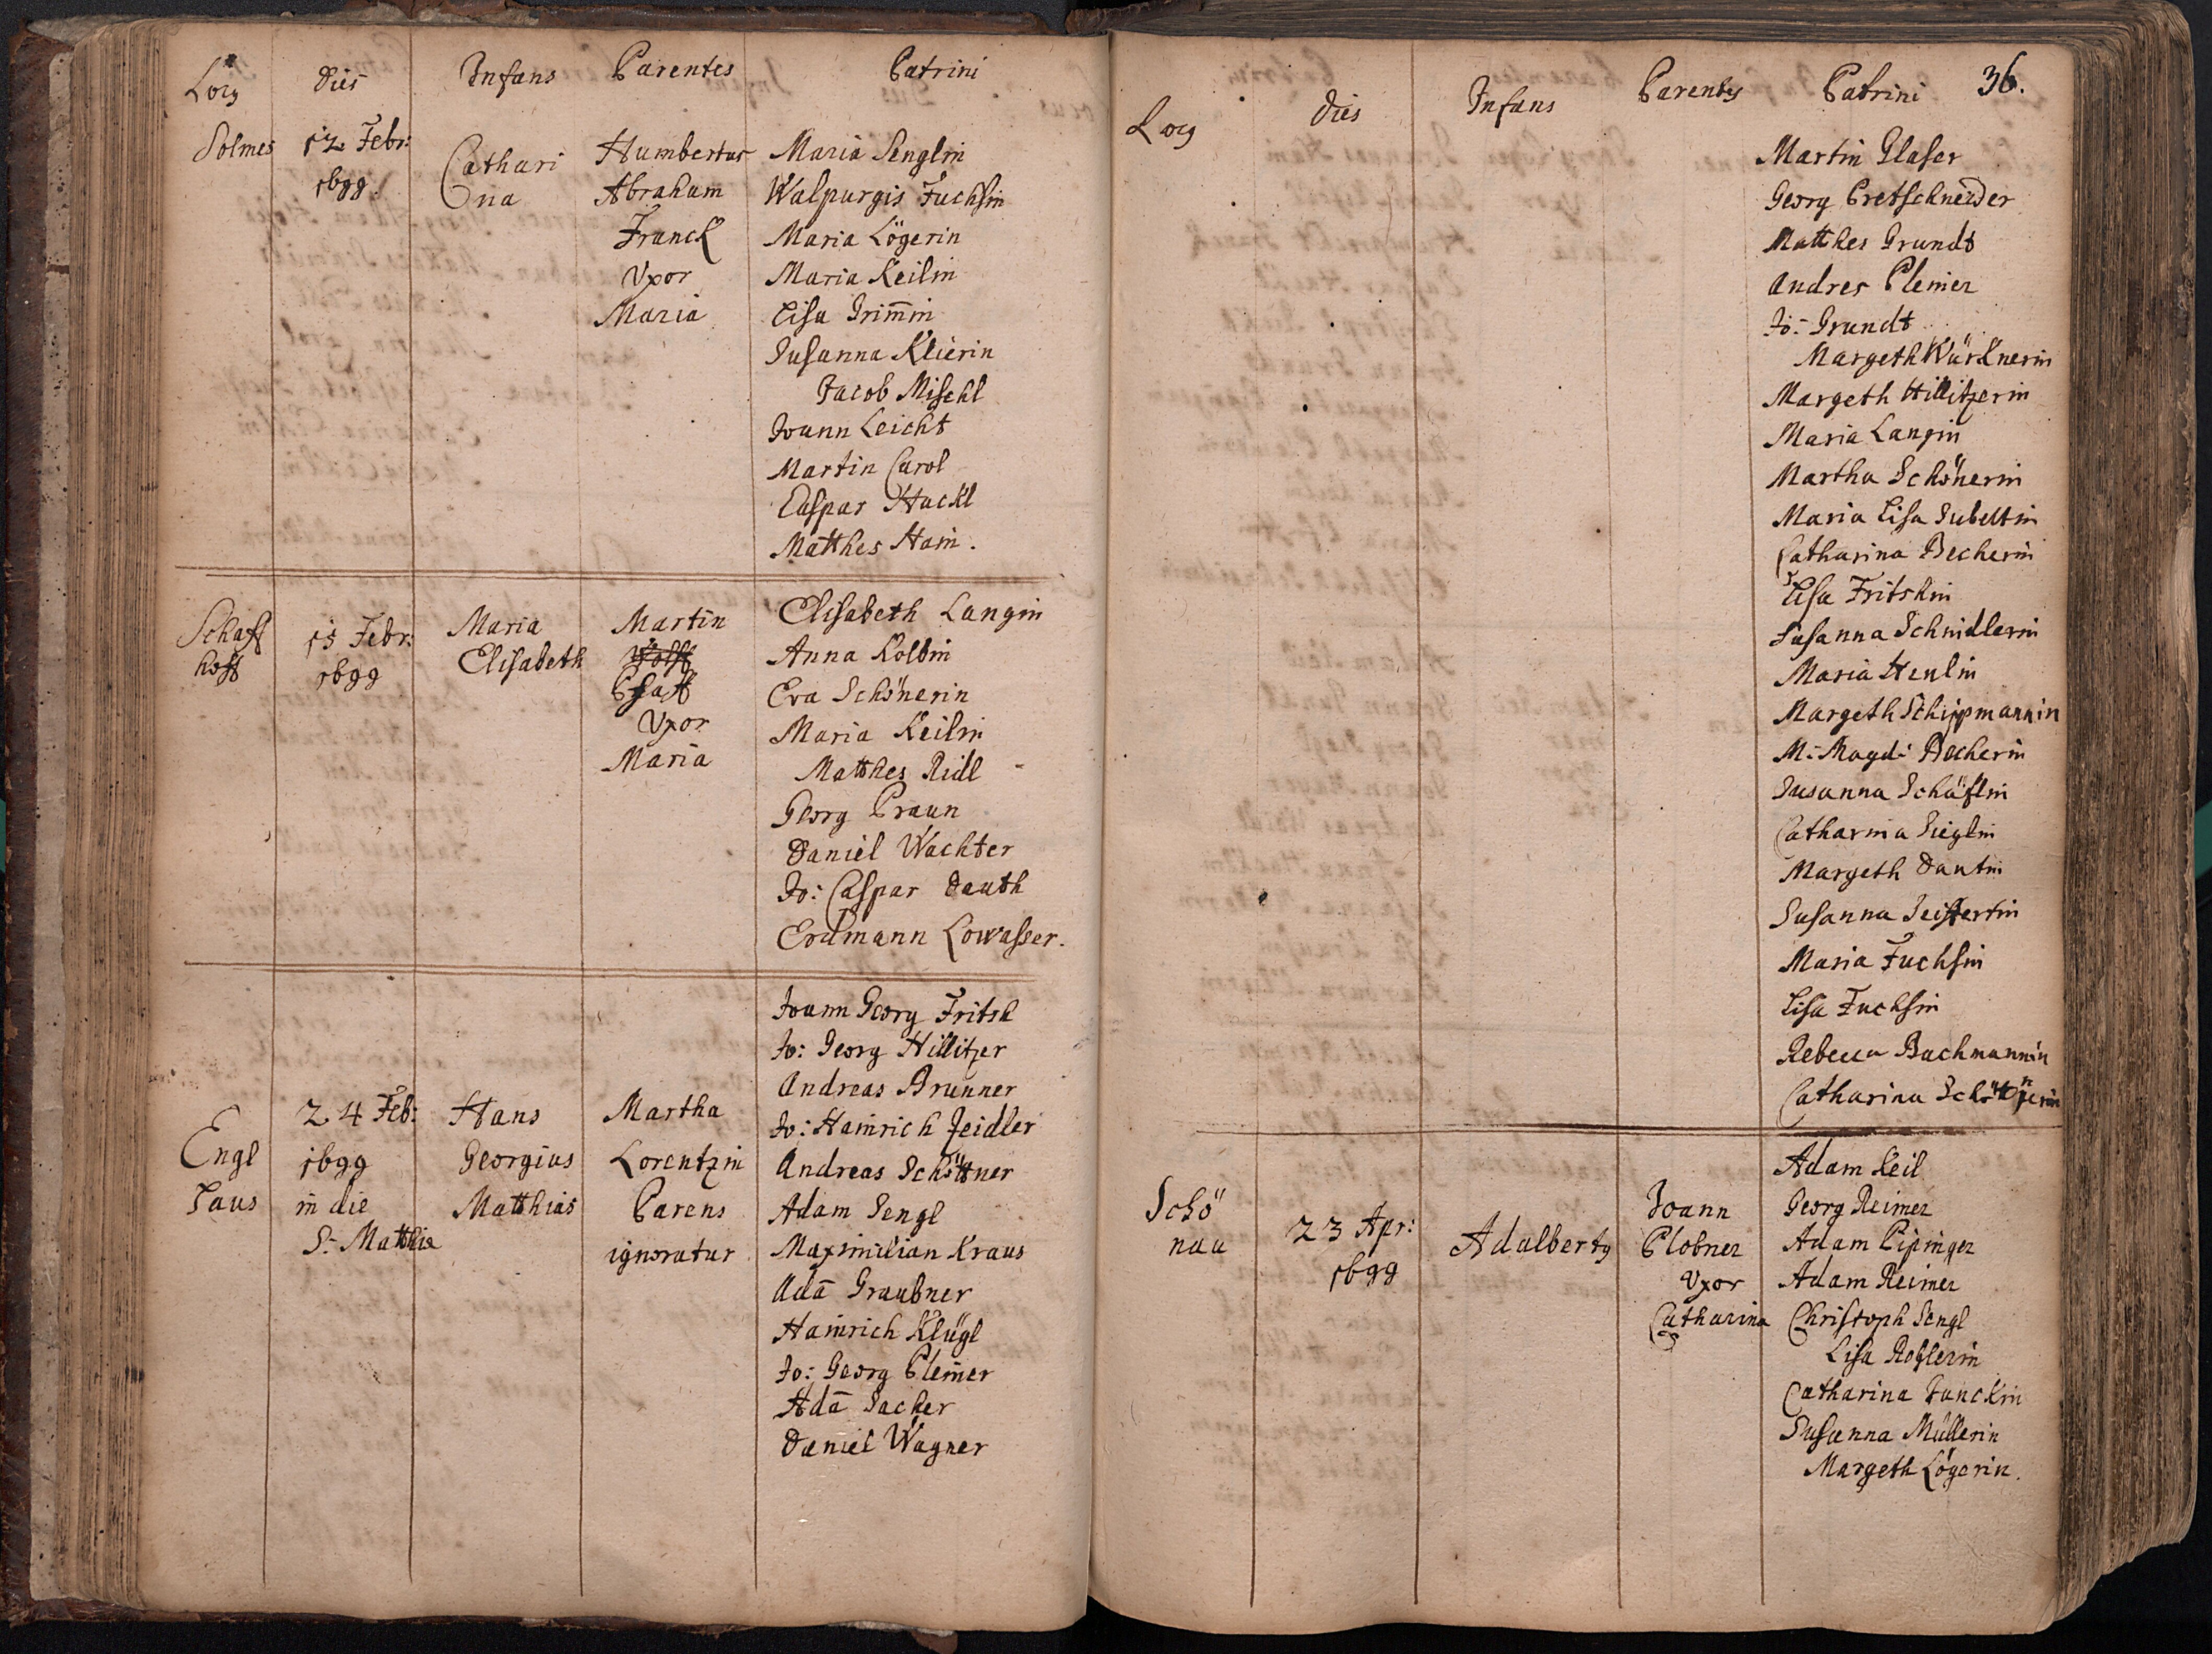 Locus Dies Infans Parentes Patrini
Solmes 12. Febr: 1699. Cathari na Humbertus Abraham Franck Vxor Maria
Maria Senglin
Walpurgis Fuchsin
Maria Lögerin
Maria Keilin
Lisa Grim̄in
Susanna Klierin
Jacob Mischl
Joann Leicht
Martin Carol
Caspar Hackl
Matthes Hain.
Schaff hoff 15 Febr: 1699 Maria Elisabeth Martin Wolff Vxor Maria
Elisabeth Langin
Anna Kolbin
Eva Schönerin
Maria Keilin
Matthes Ridl
Georg Praun
Daniel Wachter
Jo: Caspar Dauth
Erdmann Lowasser.
Engl Saus 24 Feb: 1699 in die S: Matthiæ Hans Georgius Matthias Martha Lorentzin Parens ignoratur
Joann Georg Fritsch
Jo: Georg Hillitzer
Andreas Brunner
Jo: Hainrich Zeidler
Andreas Schöttner
Adam Sengl
Maximilian Kraus
Adā Graubner
Hainrich Klügl
Jo: Georg Plem̄er
Adā Sacher
Daniel Wagner
36.
Locus Dies Infans Parentes Patrini
Martin Glaser
Georg Pretschneider
Matthes Grundt
Andres Plemer
Jo: Grundt
Margeth Würcknerin
Margeth Hillitzerin
Maria Langin
Martha Schönerin
Maria Lisa Subeltin
Catharina Becherin
Lisa Fritschin
Susanna Schmidlerin
Maria Henlin
Margeth Schippmannin
M: Magd: Becherin
Susanna Schäflin
Catharina Sieglin
Margeth Dautin
Susanna Seiffertin
Maria Fuchsin
Lisa Fuchsin
Rebecca Bachmannin
Catharina Schöttnerin
Schö nau 23 Apr: 1699 Adalbertus Joann Plobner Vxor Catharina
Adam Keil
Georg Reimer
Adam Pipinger
Adam Reimer
Christoph Sengl
Lisa Roglerin
Catharina Junckin
Susanna Müllerin
Margeth Lögerin.